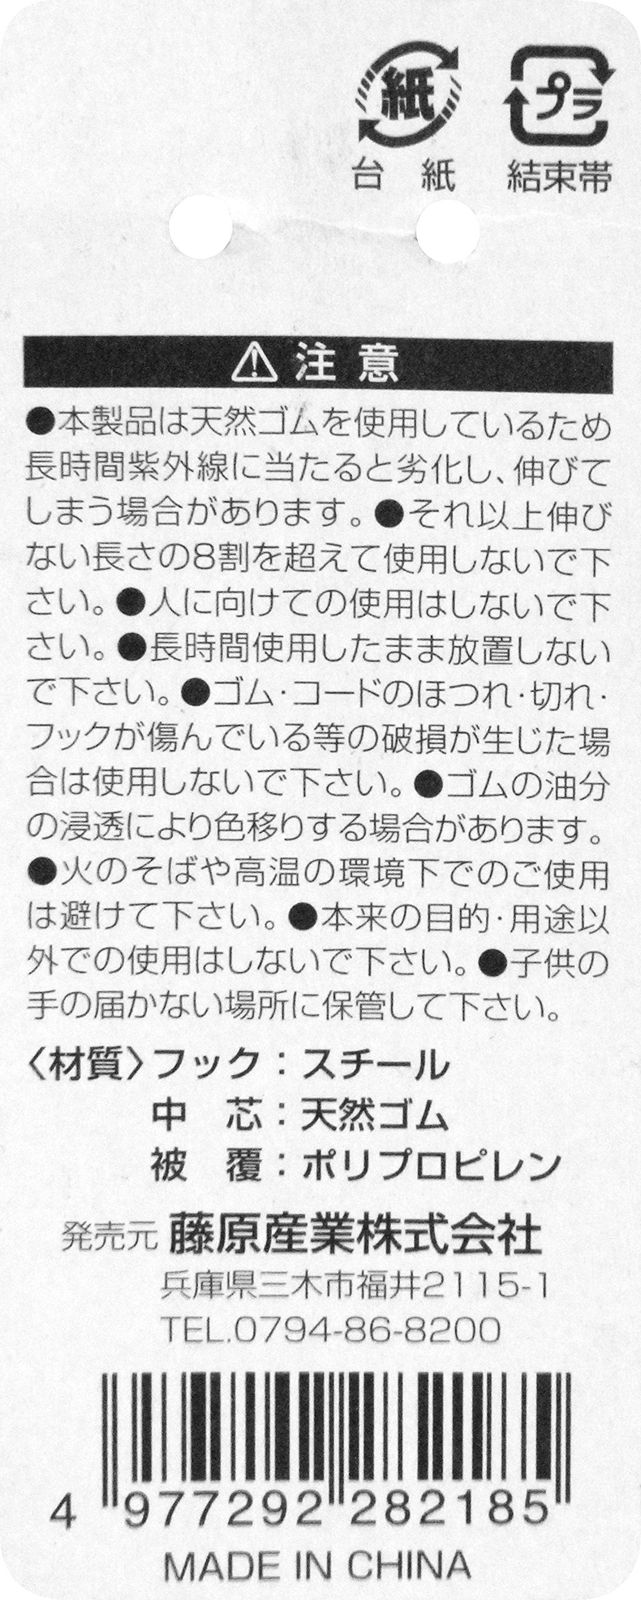 紙 プラ
台 紙 結束帯
⚠注 意
●本製品は天然ゴムを使用しているため
長時間紫外線に当たると劣化し、伸びて
しまう場合があります。●それ以上伸び
ない長さの8割を超えて使用しないで下
さい。●人に向けての使用はしないで下
さい。●長時間使用したまま放置しない
で下さい。●ゴム・コードのほつれ・切れ・
フックが傷んでいる等の破損が生じた場
合は使用しないで下さい。●ゴムの油分
の浸透により色移りする場合があります。
●火のそばや高温の環境下でのご使用
は避けて下さい。●本来の目的・用途以
外での使用はしないで下さい。●子供の
手の届かない場所に保管して下さい。
〈材質〉フック：スチール
中 芯：天然ゴム
被 覆：ポリプロピレン
発売元 藤原産業株式会社
兵庫県三木市福井2115-1
TEL.0794-86-8200
4 977292 282185
MADE IN CHINA